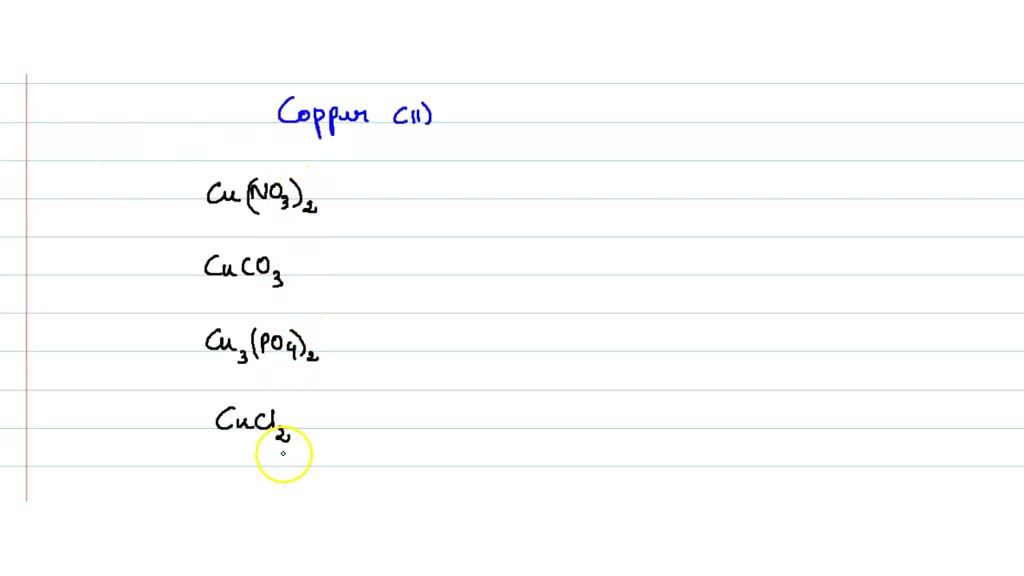 Copper (II)
Cu(NO3)2
CuCO3
Cu3(PO4)2
CuCl2